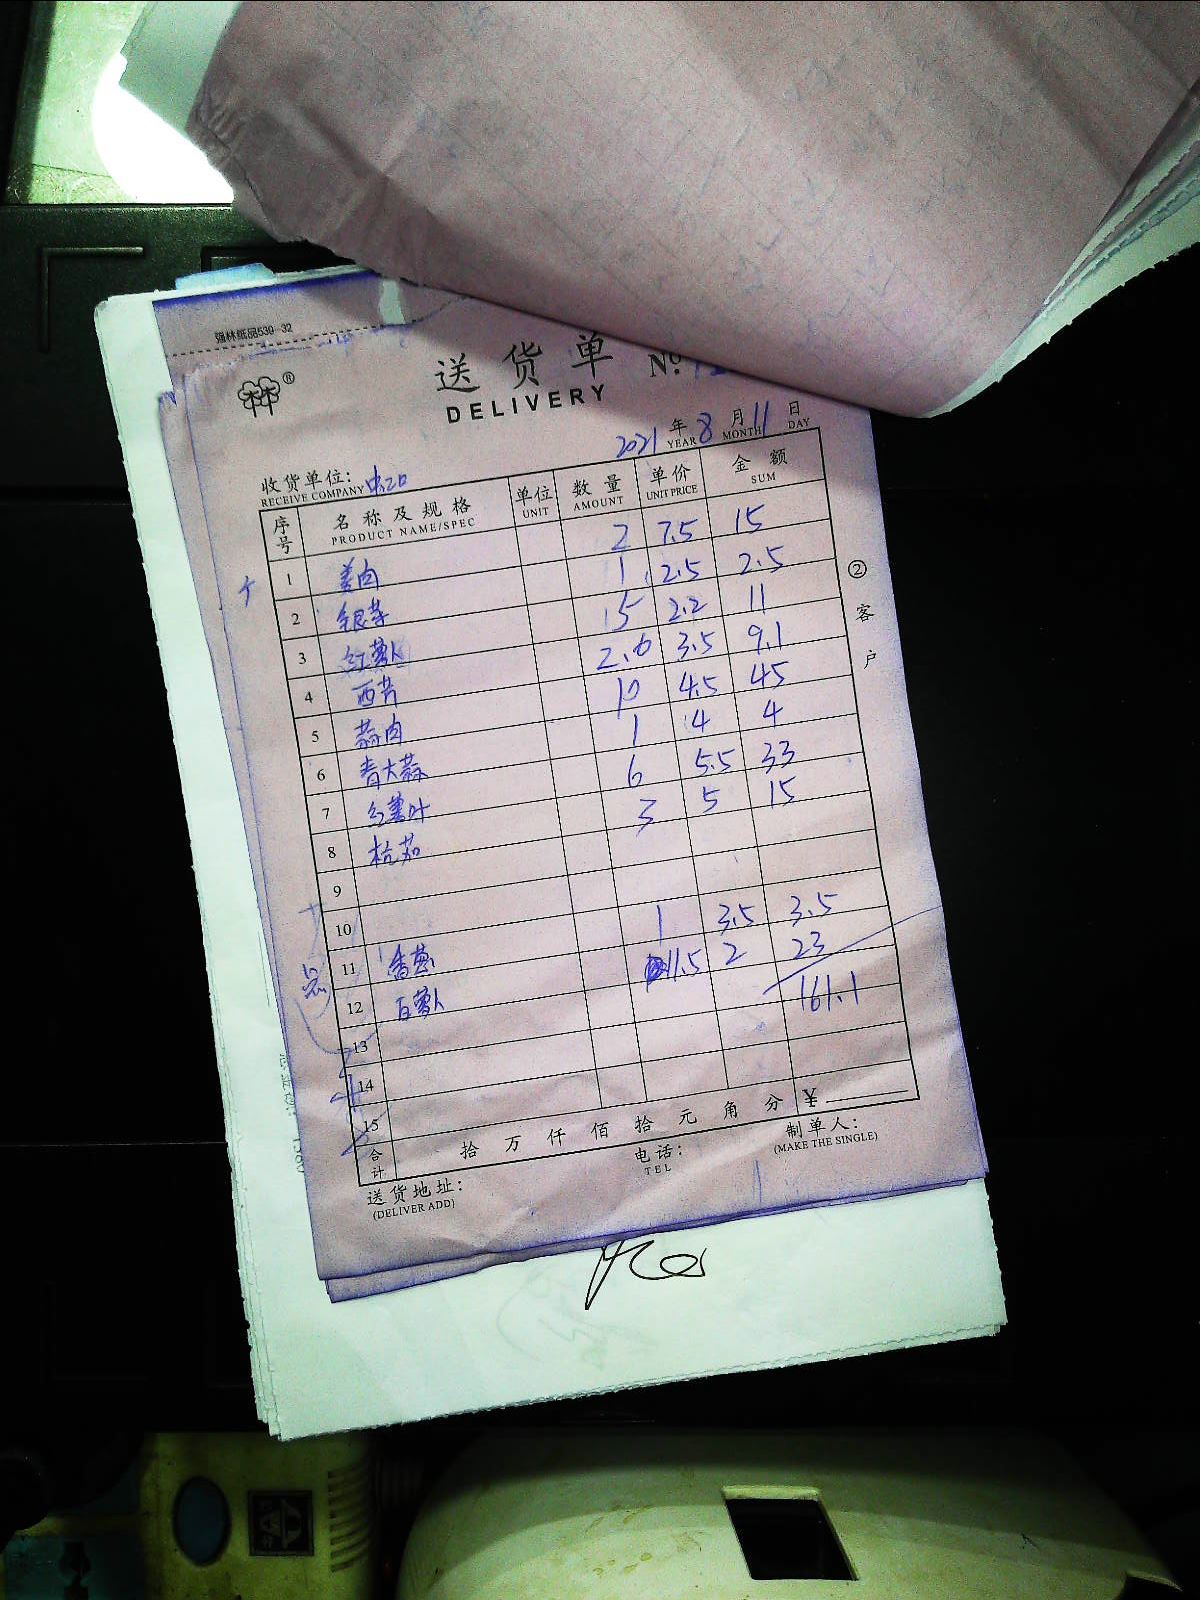 强林纸品539-32
送货单 No.
DELIVERY
2021 年 8 月 11 日
YEAR MONTH DAY
收货单位:
RECEIVE COMPANY
序号 名称及规格 单位 数量 单价 金额
PRODUCT NAME/SPEC UNIT AMOUNT UNIT PRICE SUM
1 姜肉 2 7.5 15
2 银芽 1 2.5 2.5
3 红萝卜 15 2.2 11
4 西芹 2.6 3.5 9.1
5 蒜肉 10 4.5 45
6 青大蒜 1 4 4
7 红薯叶 6 5.5 33
8 杭茄 3 5 15
9
10
11 香葱 1 3.5 3.5
12 白萝卜 11.5 2 23
13 161.1
14
15
合计 拾 万 仟 佰 拾 元 角 分 ¥
送货地址: 电话: 制单人:
(DELIVER ADD) TEL (MAKE THE SINGLE)
② 客户